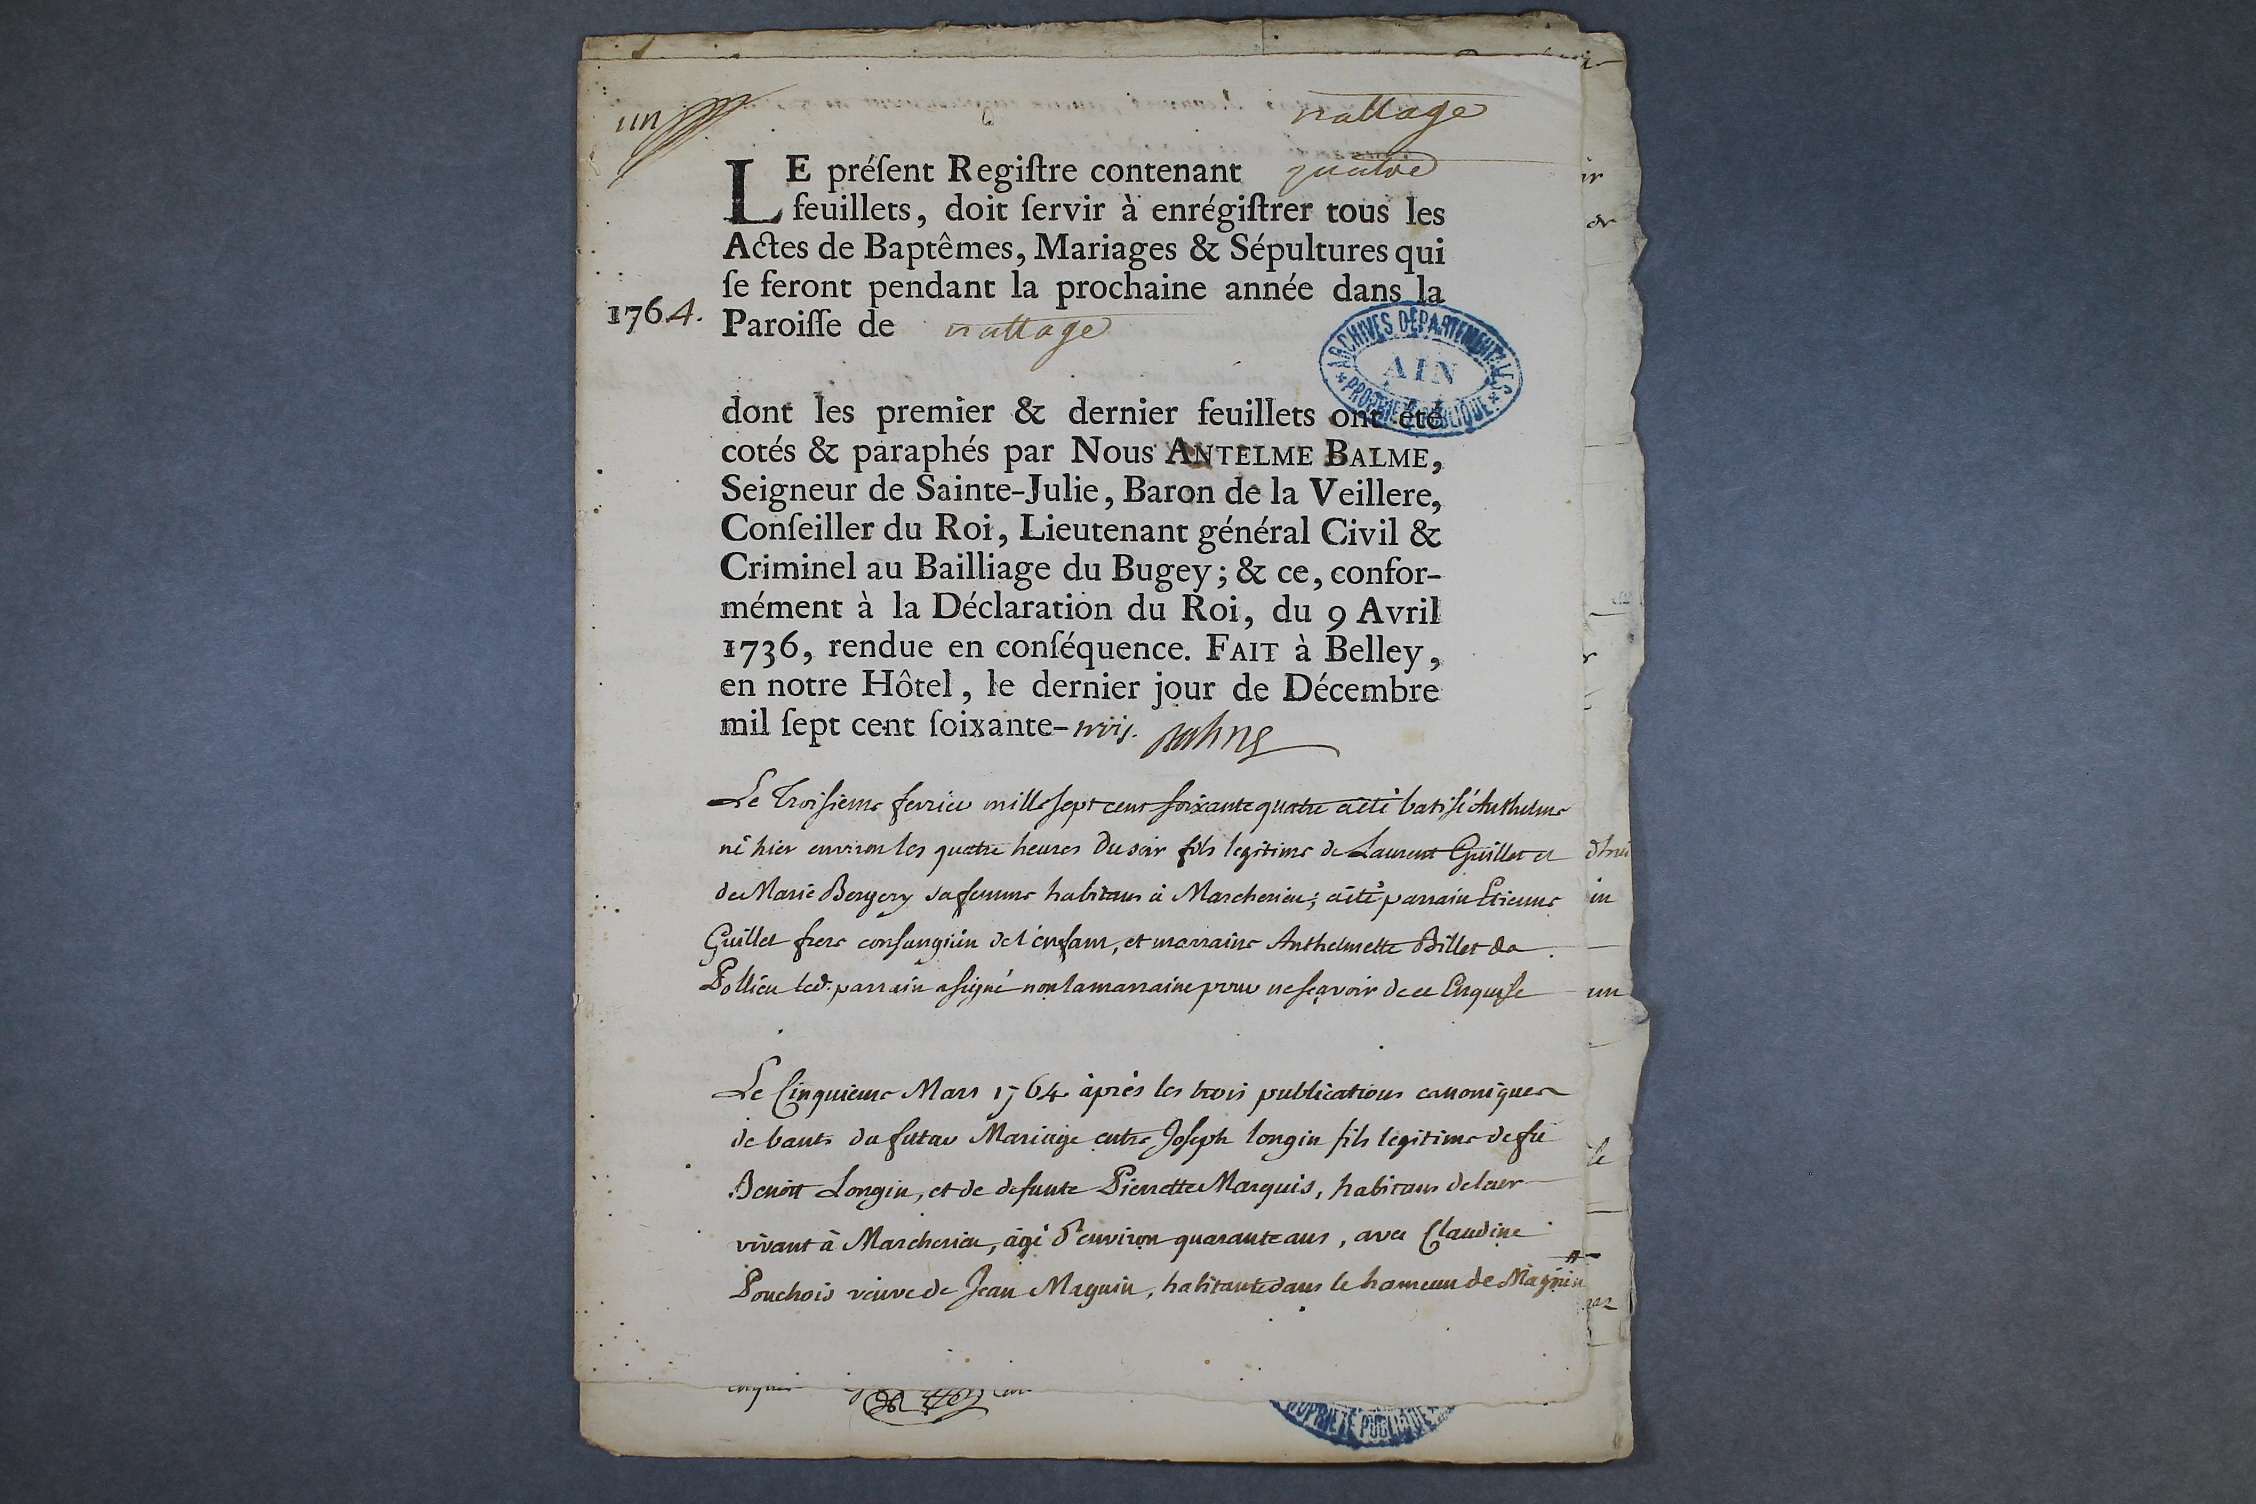 un
nattage
LE préſent Regiſtre contenant quatre
feuillets, doit ſervir à enrégiſtrer tous les
Actes de Baptêmes, Mariages & Sépultures qui
ſe feront pendant la prochaine année dans la
1764. Paroiſſe de nattage
ARCHIVES DÉPARTEMENTALES
AIN
* PROPRIÉTÉ PUBLIQUE *
dont les premier & dernier feuillets ont été
cotés & paraphés par Nous ANTELME BALME,
Seigneur de Sainte-Julie, Baron de la Veillere,
Conſeiller du Roi, Lieutenant général Civil &
Criminel au Bailliage du Bugey; & ce, confor-
mément à la Déclaration du Roi, du 9 Avril
1736, rendue en conſéquence. FAIT à Belley,
en notre Hôtel, le dernier jour de Décembre
mil ſept cent ſoixante-trois.
Le Troisieme fevrier mille sept cent soixante quatre a été batisé Anthelme
né hier environ les quatre heures du soir fils legitime de Laurent Guillet et
de Marie Bergery sa femme habitans à Marcherieu; a été parrain Etienne
Guillet frere consanguin de l'enfant, et marraine Anthelmette Billet de
Pollieu led. parrain a signé non la marraine pour ne sçavoir de ce Enquise
Le Cinquieme Mars 1764 après les trois publications canoniques
de bants du futur Mariage entre Joseph longin fils legitime de fû
Benoît Longin, et de defunte Pierrette Marquis, habitans de leur
vivant à Marcherieu, âgé d'environ quarante ans, avec Claudine
Pouchois veuve de Jean Magnin, habitante dans le hameau de Magnin
PROPRIÉTÉ PUBLIQUE